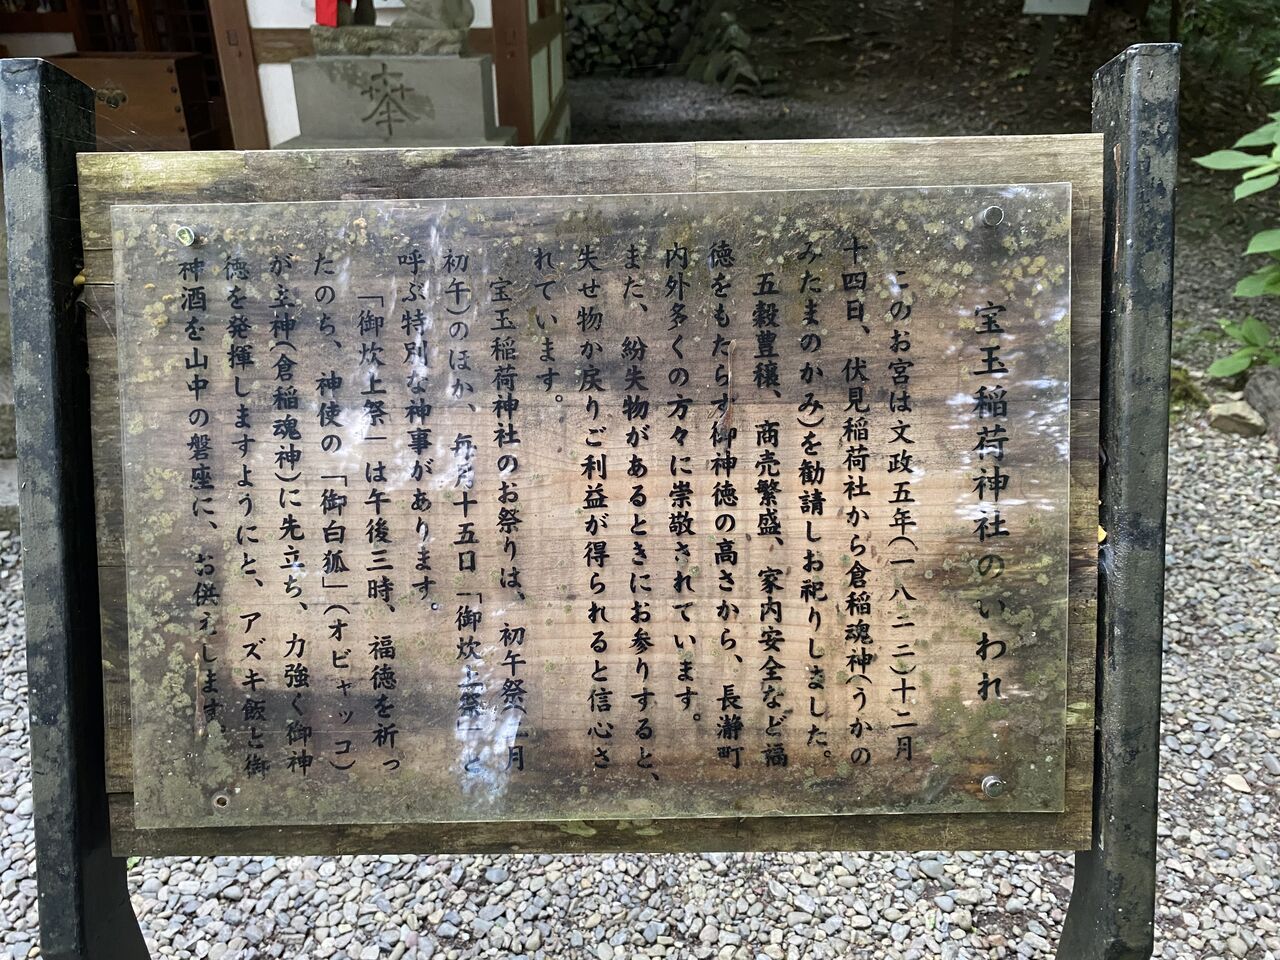 奉
宝玉稲荷神社のいわれ
このお宮は文政五年(一八二二)十二月
十四日、伏見稲荷社から倉稲魂神(うかの
みたまのかみ)を勧請しお祀りしました。
五穀豊穣、商売繁盛、家内安全など福
徳をもたらす御神徳の高さから、長瀞町
内外多くの方々に崇敬されています。
また、紛失物があるときにお参りすると、
失せ物か戻りご利益が得られると信心さ
れています。
宝玉稲荷神社のお祭りは、初午祭(二月
初午)のほか、毎月十五日「御炊上祭」と
呼ぶ特別な神事があります。
「御炊上祭」は午後三時、福徳を祈っ
たのち、神使の「御白狐」(オビャッコ)
が主神(倉稲魂神)に先立ち、力強く御神
徳を発揮しますようにと、アズキ飯と御
神酒を山中の磐座に、お供えします。